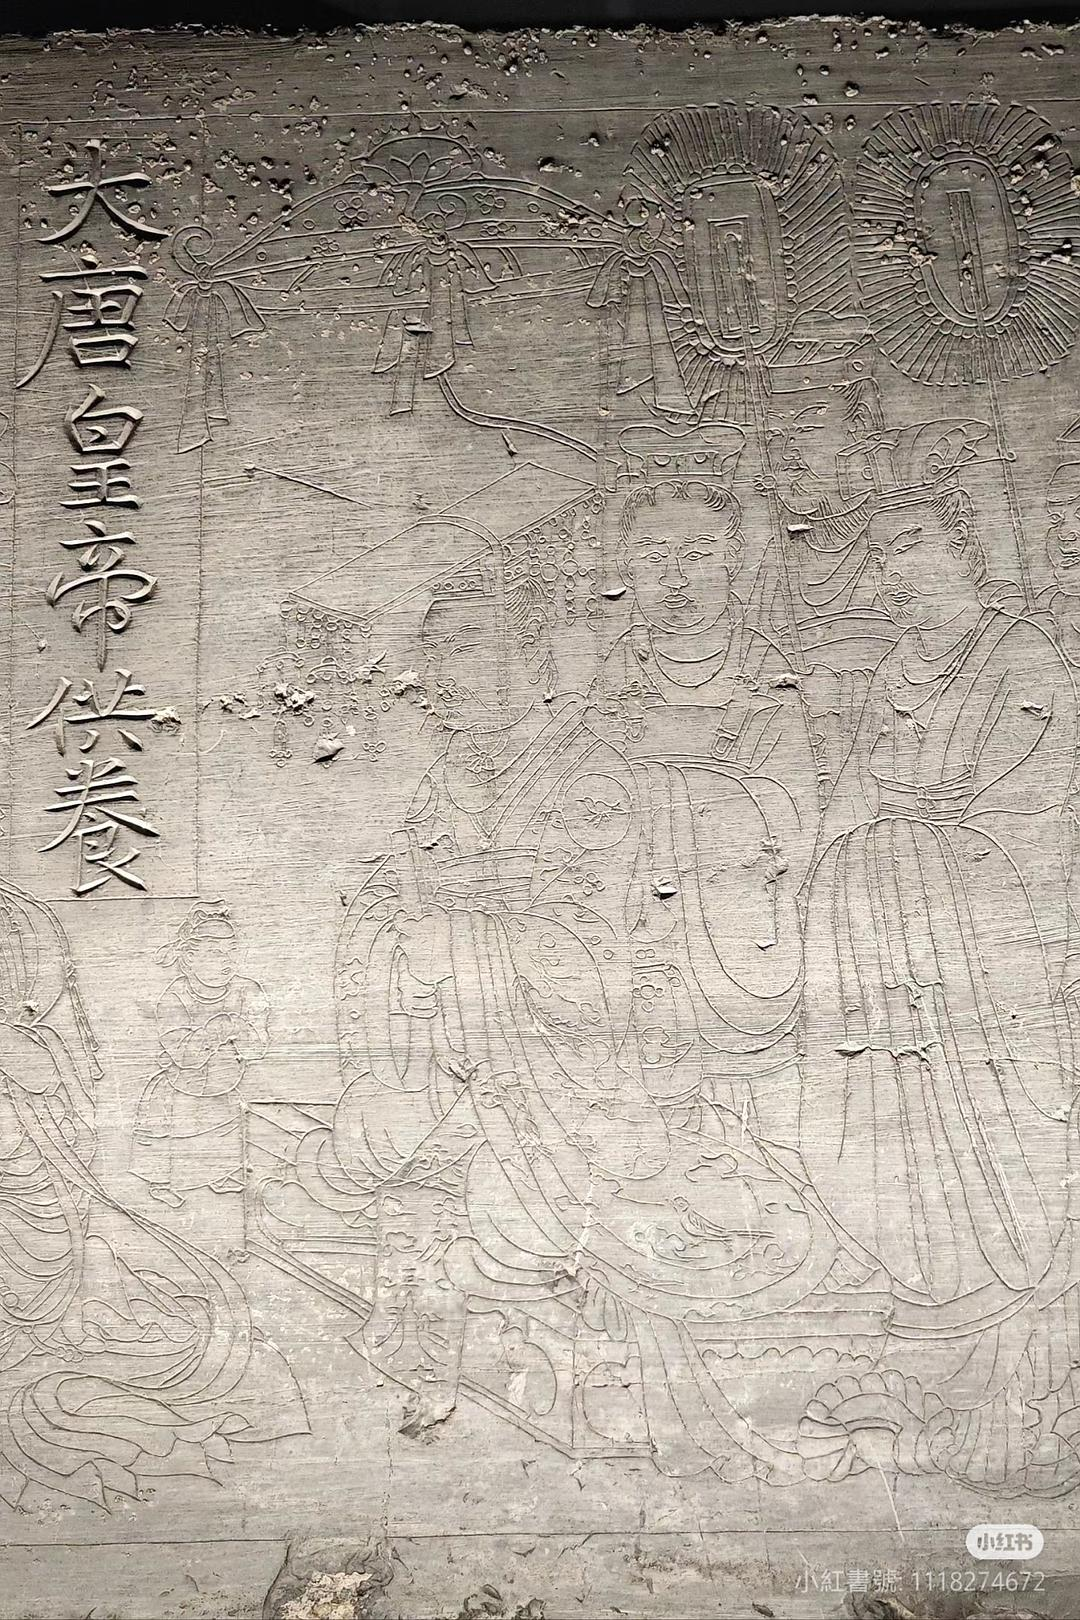 大唐皇帝供養
小红书
小紅書號: 1118274672